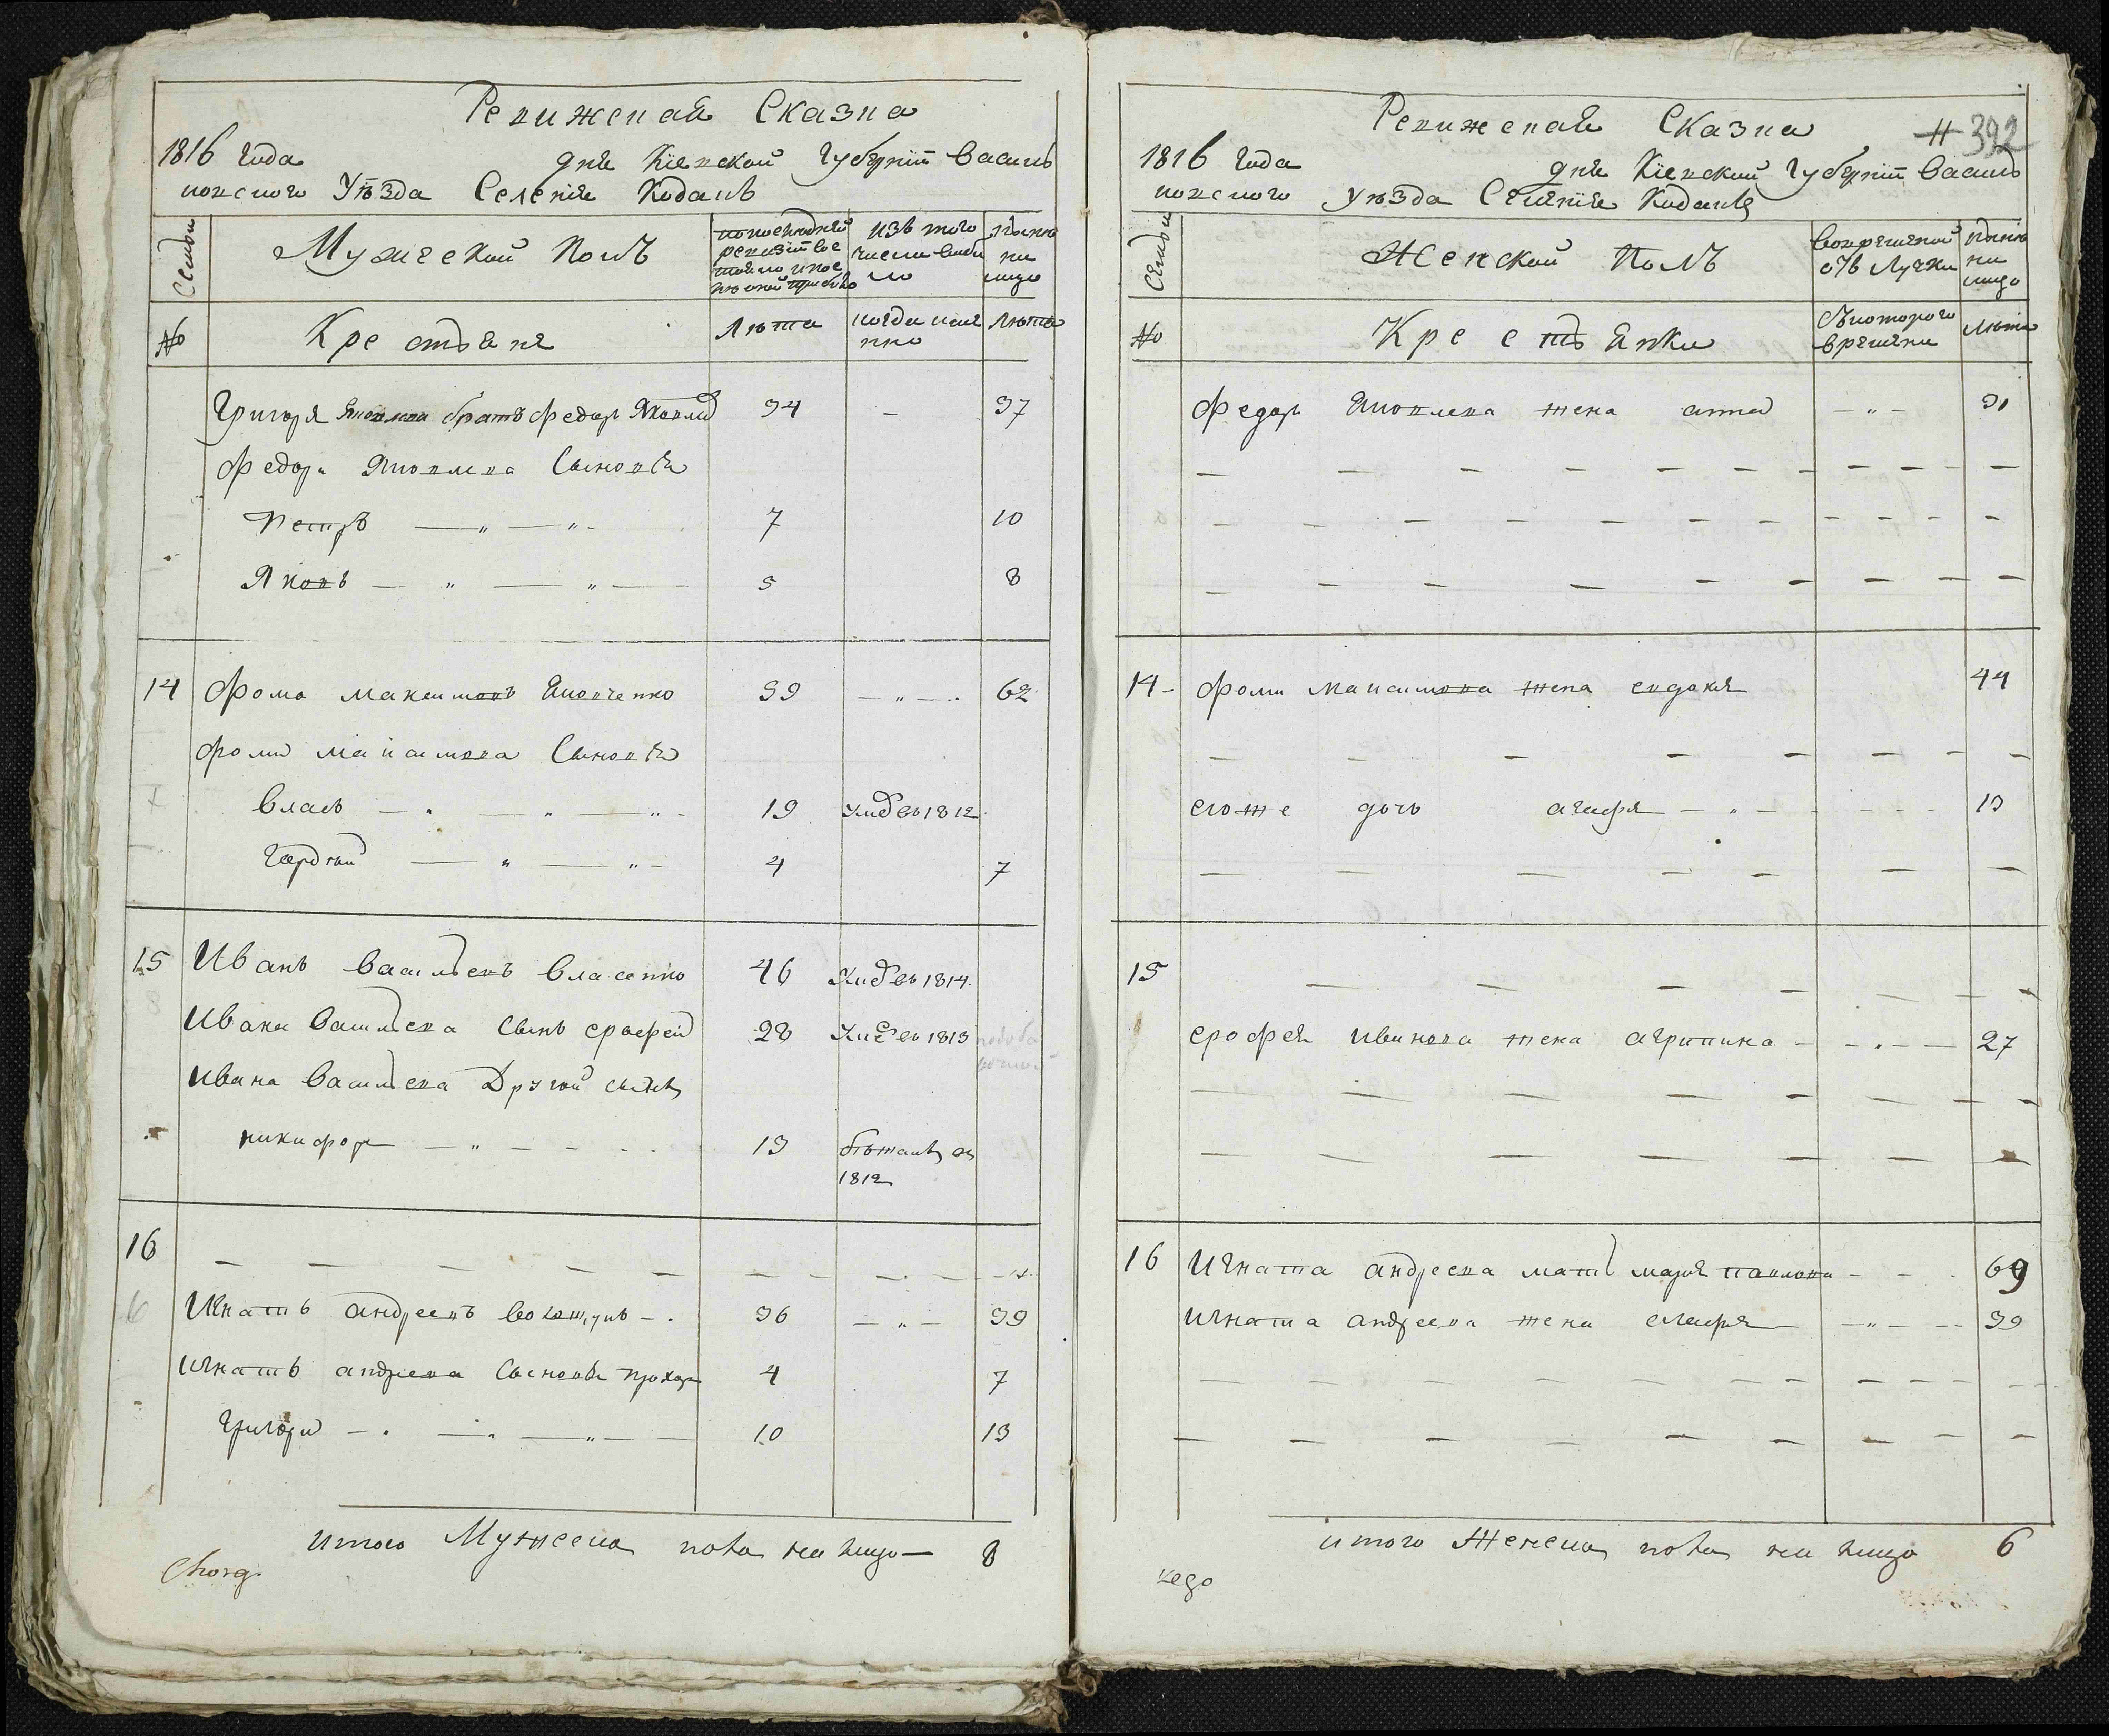 Ревижская Сказка
1816 Года дня Кіевской Губерніи Василь
ковского Уѣзда Селенія Кодакъ
Семьи
Мужеской Полъ
попоследней ревизіи все
изъ того числа выбы
ло
нынѣ
на
лицо
№
Крестьяне
Лѣта
когда имян
но
Лѣта
Григоря Яковлева братъ Федоръ Яковлев 34 – 37
Федора Яковлева Сыновя
Петръ — „ — „ - 7 10
Яковъ — „ — „ — 5 8
14 Фома Максимовъ Яковченко 59 — „ — 62
Фоми Максимова Сыновя
Власъ — „ — „ — „ - 19 Умеръ въ 1812
Гордѣй — „ — „ - 4 7
15 Иванъ Васильевъ Власенко 46 Умеръ въ 1814
Ивана Васильева Сынъ Ерофей 28 Умеръ въ 1813
Ивана Васильева Другой сынъ
никифоръ — „ — — 13 бѣжалъ въ
1812
16 — — — — — — — — — —
Игнатъ андреевъ - . 36 — „ — 39
Игнатъ андреева Сыновя прохоръ 4 7
Григори — . — „ — „ — 10 13
итого Мужеска пола на лицо — 8
Ревижская Сказка 392
1816 Года дня Кіевской Губерніи Василь
ковского Уѣзда Селенія Кодакъ
Семьи
Женской Полъ
вовременной
отъ Лучки
нынѣ
на
лицо
№
Крестьянки
Съкоторого
времени
Лѣта
Федора Яковлева жена анна — „ — 31
14 - Фоми Максимова жена евдокия 44
егоже дочь агафя — „ — 13
15 — — — — — — —
ерофея Иванова жена агрипина — — . — 27
16 Игната андреева мать маря павлова - - . 69
Игната андреева жена агафя — „ — 39
итого Женска пола на лицо 6